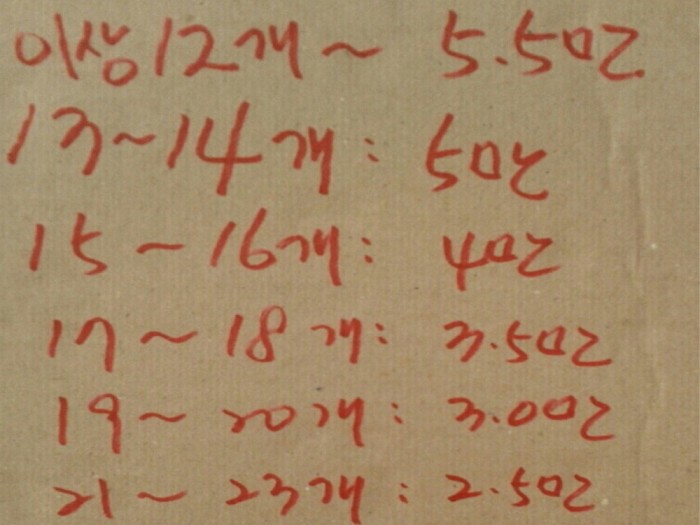 이상12개~ 5.5oz
13~14개: 5oz
15~16개: 4oz
17~18개: 3.5oz
19~20개: 3.0oz
21~23개: 2.5oz